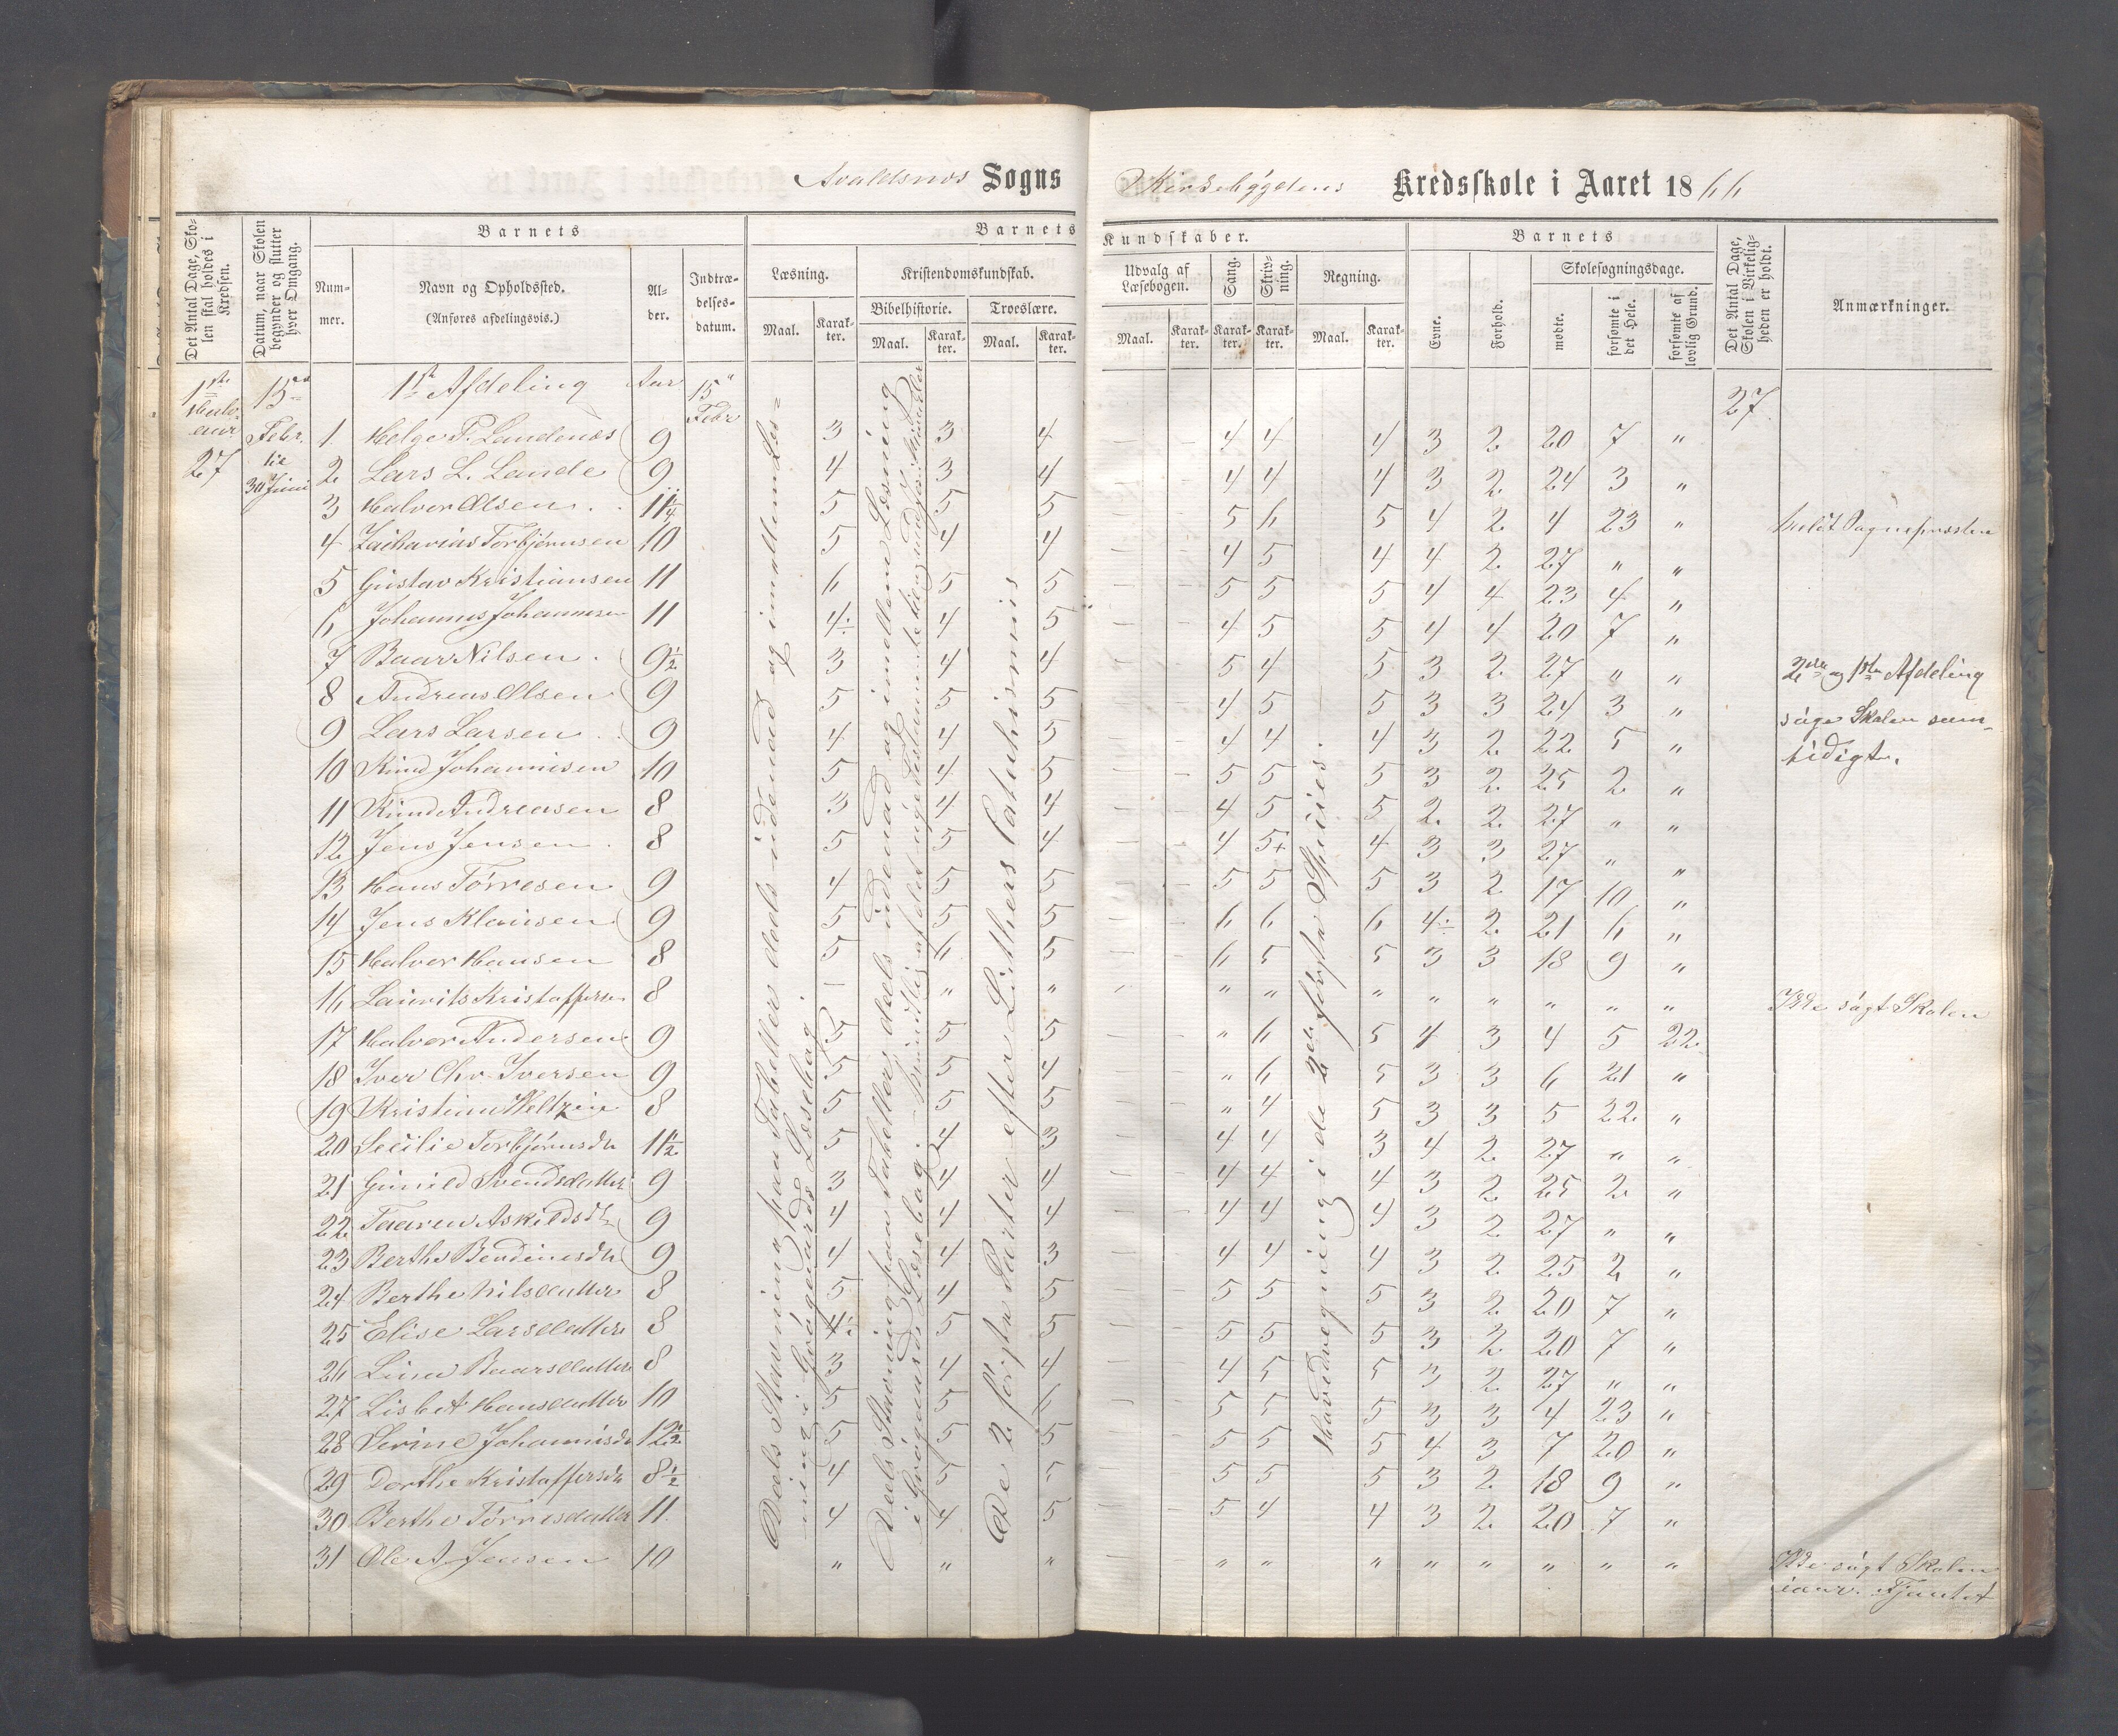 Avaldsnes Sogns Kirkebygdens Kredsskole i Aaret 1866
Det Antal Dage, Skolen skal holdes i Kredsen.
Datum, naar Skolen begynder og slutter hver Omgang.
Barnets
Nummer.
Navn og Opholdssted.
(Anføres afdelingsvis.)
Alder.
Indtrædelsesdatum.
Barnets Kundskaber.
Læsning.
Maal. Karakter.
Kristendomskundskab.
Bibelhistorie. Troeslære.
Maal. Karakter. Maal. Karakter.
Udvalg af Læsebogen.
Maal. Karakter.
Sang. Karakter.
Skrivning. Karakter.
Regning.
Maal. Karakter.
Barnets
Evne. Forhold.
Skolesøgningsdage.
mødte. forsømte i det Hele. forsømte af lovlig Grund.
Det Antal Dage, Skolen i Virkeligheden er holdt.
Anmærkninger.
1ste Halvaar 27
15de Febr. til 30 Juni
1ste Afdeling Aar 15 Febr 27
1 Helge P. Landenæs 9 3 3 4 — — 4 4 4 3 2 20 7 "
2 Lars L. Lande 9 4 3 4 — — 4 4 4 3 2 24 3 "
3 Halvor Olsen 11 1/4 5 5 5 — — 5 6 5 4 2 4 23 " Sognepræsten
4 Zacharias Torbjørnsen 10 5 4 4 — — 4 5 4 4 2 27 " "
5 Gustav Kristiansen 11 6 5 5 — — 5 5 5 4 4 23 4 "
6 Johannes Johannesen 11 4÷ 4 5 — — 4 5 5 4 4 20 7 "
7 Baar Nilsen 9 1/2 3 4 4 — — 5 4 5 3 2 27 " " 2den og 1ste Afdeling
8 Andreas Olsen 9 5 5 5 — — 4 5 5 3 3 24 3 " søge Skolen sam-
9 Lars Larsen 9 4 4 5 — — 4 4 4 3 2 22 5 " tidigt.
10 Knud Johannesen 10 5 4 5 — — 5 5 5 3 2 25 2 "
11 Knud Andreasen 8 3 4 4 — — 4 5 5 2 2 27 " "
12 Jens Jensen 8 5 5 4 — — 4 5+ 4 3 3 27 " "
13 Hans Tørresen 9 4 5 5 — — 5 5 5 3 2 17 10 "
14 Jens Klausen 9 5 5 5 — — 6 6 6 4÷ 2 21 6 "
15 Halvor Hansen 8 5 6 5 — — 6 5 5 3 3 18 9 "
16 Lauritz Kristoffersen 8 — " " " " " " " " " " Ikke søgt Skolen
17 Halvor Andersen 9 5 5 5 — — " 6 5 4 3 4 5 22
18 Iver Chr. Iversen 9 5 5 4 — — " 6 5 3 3 6 21 "
19 Kristian Weltzin 8 5 5 5 — — " 4 5 3 3 5 22 "
20 Secilie Torbjørnsdtr 11 1/2 5 4 3 — — 4 4 3 4 2 27 " "
21 Gunild Svendsdatter 9 3 4 4 — — 4 4 4 3 2 25 2 "
22 Taaren Askildsdtr 9 4 4 4 — — 4 4 4 3 2 27 " "
23 Berthe Bendixsdtr 9 4 4 3 — — 4 4 4 3 2 25 2 "
24 Berthe Nilsdatter 8 5 4 5 — — 5 5 5 3 2 20 7 "
25 Elise Larsdatter 8 4÷ 5 5 — — 5 5 5 3 2 20 7 "
26 Lina Baarsdatter 8 3 4 4 — — 4 5 5 3 2 27 " "
27 Lisbet Hansdatter 10 5 5 6 — — 5 5 5 3 3 4 23 "
28 Serine Johannisdtr 12 1/2 5 5 5 — — 5 5 5 4 3 7 20 "
29 Dorthe Kristoffersdtr 8 1/2 4 5 5 — — 5 5 5 3 2 18 9 "
30 Berthe Tørresdatter 11 4 4 5 — — 5 4 4 3 2 20 7 "
31 Ole A. Jensen 10 " " " — " " " " " " " " Ikke søgt Skolen
iaar.
Deels Stavning paa Tabeller deels indenad og imellem Læs-
ning i Grøgaards Læsebog.
Deels Stavning paa Tabeller deels indenad og imellem Læsning
i Grøgaards Læsebog.
De 2 første Parter efter Luthers Catechismus
Hovedregning i de 2de første Specier.